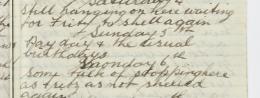 Saturday 4
still hanging on here waiting
for Fritz to shell again
Sunday 5th
Pay day & the usual
birthdays
Monday 6th
Some talk of stopping here
as Fritz as not shelled
again